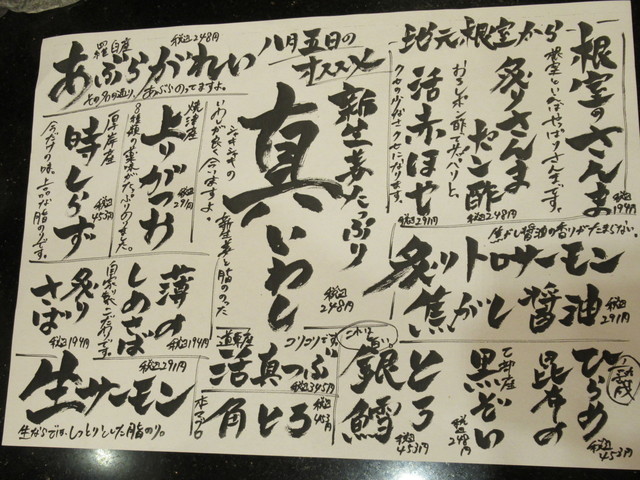 八月五日の
オススメ
地元根室から
根室のさんま
根室といえばやっぱりさんまです。
税込194円
炙りさんま
ポン酢
税込248円
おろしポン酢でさっぱりと。
活赤ほや
税込291円
羅臼産
税込248円
あぶらがれい
その名の通り、あぶらのってますよ。
新生姜たっぷり
真いわし
税込248円
シャキシャキの新生姜と脂ののった
いわしが良く合いますよ。
焼津産
上りがつお
税込291円
厚岸産
時しらず
税込453円
焦がし醤油の香りがたまらない。
炙りトロサーモン
焦がし醤油
税込291円
薄の
しめさば
税込194円
自家製
炙り
さば
税込194円
ひらめ
昆布の
税込453円
乙部産
黒ぞい
税込248円
とろ
銀鱈
税込453円
コリコリです
道東産
活真つぶ
税込345円
本マグロ
角とろ
税込453円
税込291円
生サーモン
生ならでは、しっとりとした脂のり。